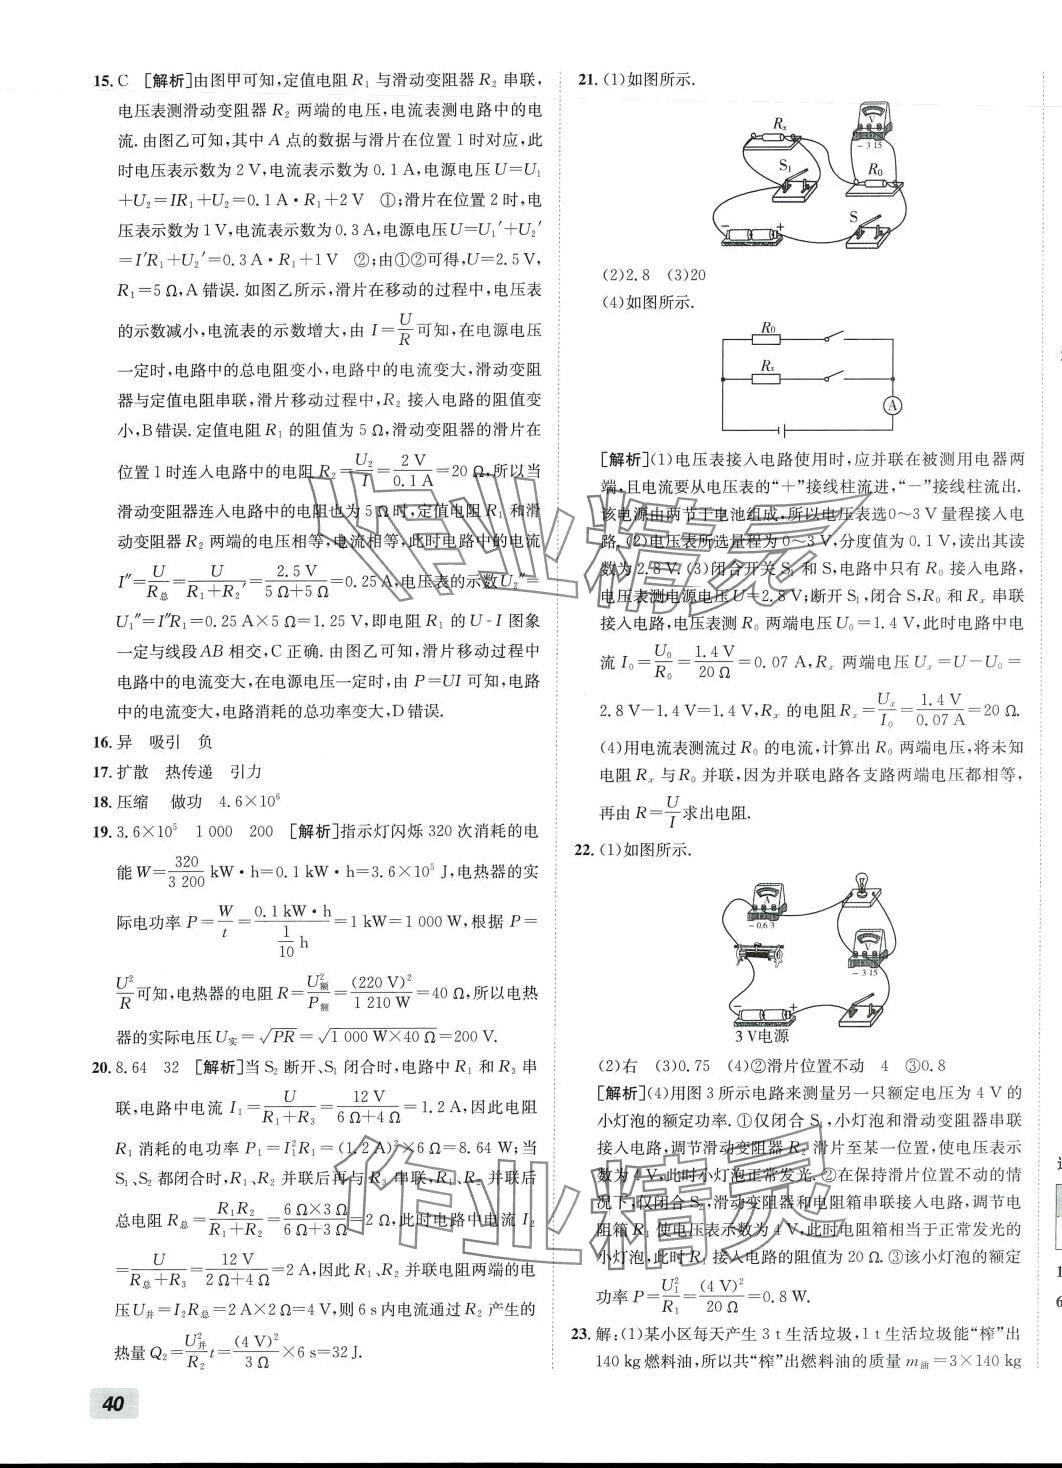 15. C [解析]由图甲可知,定值电阻 R₁ 与滑动变阻器 R₂ 串联,
电压表测滑动变阻器 R₂ 两端的电压,电流表测电路中的电
流. 由图乙可知,其中 A 点的数据与滑片在位置 1 时对应,此
时电压表示数为 2 V,电流表示数为 0.1 A,电源电压 U=U₁
+U₂=IR₁+U₂=0.1 A·R₁+2 V ①;滑片在位置 2 时,电
压表示数为 1 V,电流表示数为 0.3 A,电源电压 U=U₁′+U₂′
=I′R₁+U₂′=0.3 A·R₁+1 V ②;由①②可得,U=2.5 V,
R₁=5 Ω,A 错误. 如图乙所示,滑片在移动的过程中,电压表
的示数减小,电流表的示数增大,由 I=U/R可知,在电源电压
一定时,电路中的总电阻变小,电路中的电流变大,滑动变阻
器与定值电阻串联,滑片移动过程中,R₂ 接入电路的阻值变
小,B错误. 定值电阻 R₁ 的阻值为 5 Ω,滑动变阻器的滑片在
位置 1 时连入电路中的电阻 R₂=U₂/I=2 V/0.1 A=20 Ω,所以当
滑动变阻器连入电路中的电阻也为 5 Ω 时,定值电阻 R₁ 和滑
动变阻器 R₂ 两端的电压相等,电流相等,此时电路中的电流
I″=U/R总=U/(R₁+R₂′)=2.5 V/(5 Ω+5 Ω)=0.25 A,电压表的示数 U₂″=
U₁″=I″R₁=0.25 A×5 Ω=1.25 V,即电阻 R₁ 的 U-I 图象
一定与线段 AB 相交,C 正确. 由图乙可知,滑片移动过程中
电路中的电流变大,在电源电压一定时,由 P=UI 可知,电路
中的电流变大,电路消耗的总功率变大,D 错误.
16. 异 吸引 负
17. 扩散 热传递 引力
18. 压缩 做功 4.6×10⁶
19. 3.6×10⁵ 1 000 200 [解析]指示灯闪烁 320 次消耗的电
能 W=320/3 200 kW·h=0.1 kW·h=3.6×10⁵ J,电热器的实
际电功率 P=W/t=0.1 kW·h/(1/10 h)=1 kW=1 000 W,根据 P=
U²/R可知,电热器的电阻 R=U额²/P额=(220 V)²/1 210 W=40 Ω,所以电热
器的实际电压 U实=√PR=√1 000 W×40 Ω=200 V.
20. 8.64 32 [解析]当 S₂ 断开、S₁ 闭合时,电路中 R₁ 和 R₃ 串
联,电路中电流 I₁=U/(R₁+R₃)=12 V/(6 Ω+4 Ω)=1.2 A,因此电阻
R₁ 消耗的电功率 P₁=I₁²R₁=(1.2 A)²×6 Ω=8.64 W;当
S₁、S₂ 都闭合时,R₁、R₂ 并联后再与 R₃ 串联,R₁、R₂ 并联后
总电阻 R总=R₁R₂/(R₁+R₂)=6 Ω×3 Ω/(6 Ω+3 Ω)=2 Ω,此时电路中电流 I₂
=U/(R总+R₃)=12 V/(2 Ω+4 Ω)=2 A,因此 R₁、R₂ 并联电阻两端的电
压 U并=I₂R总=2 A×2 Ω=4 V,则 6 s 内电流通过 R₂ 产生的
热量 Q₂=U并²/R₂ t=(4 V)²/3 Ω×6 s=32 J.
40
21. (1)如图所示.
Rₓ
V
-3 15
S₁
R₀
S
- +
(2)2.8 (3)20
(4)如图所示.
R₀
Rₓ
A
[解析](1)电压表接入电路使用时,应并联在被测用电器两
端,且电流要从电压表的“+”接线柱流进,“-”接线柱流出.
该电源由两节干电池组成,所以电压表选0~3 V量程接入电
路. (2)电压表所选量程为 0~3 V,分度值为 0.1 V,读出其读
数为 2.8 V. (3)闭合开关 S₁ 和 S,电路中只有 R₀ 接入电路,
电压表测电源电压 U=2.8 V;断开 S₁,闭合 S,R₀ 和 Rₓ 串联
接入电路,电压表测 R₀ 两端电压 U₀=1.4 V,此时电路中电
流 I₀=U₀/R₀=1.4 V/20 Ω=0.07 A,Rₓ 两端电压 Uₓ=U-U₀=
2.8 V-1.4 V=1.4 V,Rₓ 的电阻 Rₓ=Uₓ/I₀=1.4 V/0.07 A=20 Ω.
(4)用电流表测流过 R₀ 的电流,计算出 R₀ 两端电压,将未知
电阻 Rₓ 与 R₀ 并联,因为并联电路各支路两端电压都相等,
再由 R=U/I求出电阻.
22. (1)如图所示.
A
-0.6 3
V
-3 15
- +
3 V电源
(2)右 (3)0.75 (4)②滑片位置不动 4 ③0.8
[解析](4)用图 3 所示电路来测量另一只额定电压为 4 V 的
小灯泡的额定功率. ①仅闭合 S₁,小灯泡和滑动变阻器串联
接入电路,调节滑动变阻器 R₂ 滑片至某一位置,使电压表示
数为 4 V,此时小灯泡正常发光. ②在保持滑片位置不动的情
况下,仅闭合 S₂,滑动变阻器和电阻箱串联接入电路,调节电
阻箱 R₁ 使电压表示数为 4 V,此时电阻箱相当于正常发光的
小灯泡,此时 R₁ 接入电路的阻值为 20 Ω. ③该小灯泡的额定
功率 P=U₁²/R₁=(4 V)²/20 Ω=0.8 W.
23. 解:(1)某小区每天产生 3 t 生活垃圾,1 t 生活垃圾能“榨”出
140 kg 燃料油,所以共“榨”出燃料油的质量 m油=3×140 kg
作业精灵
作业精灵